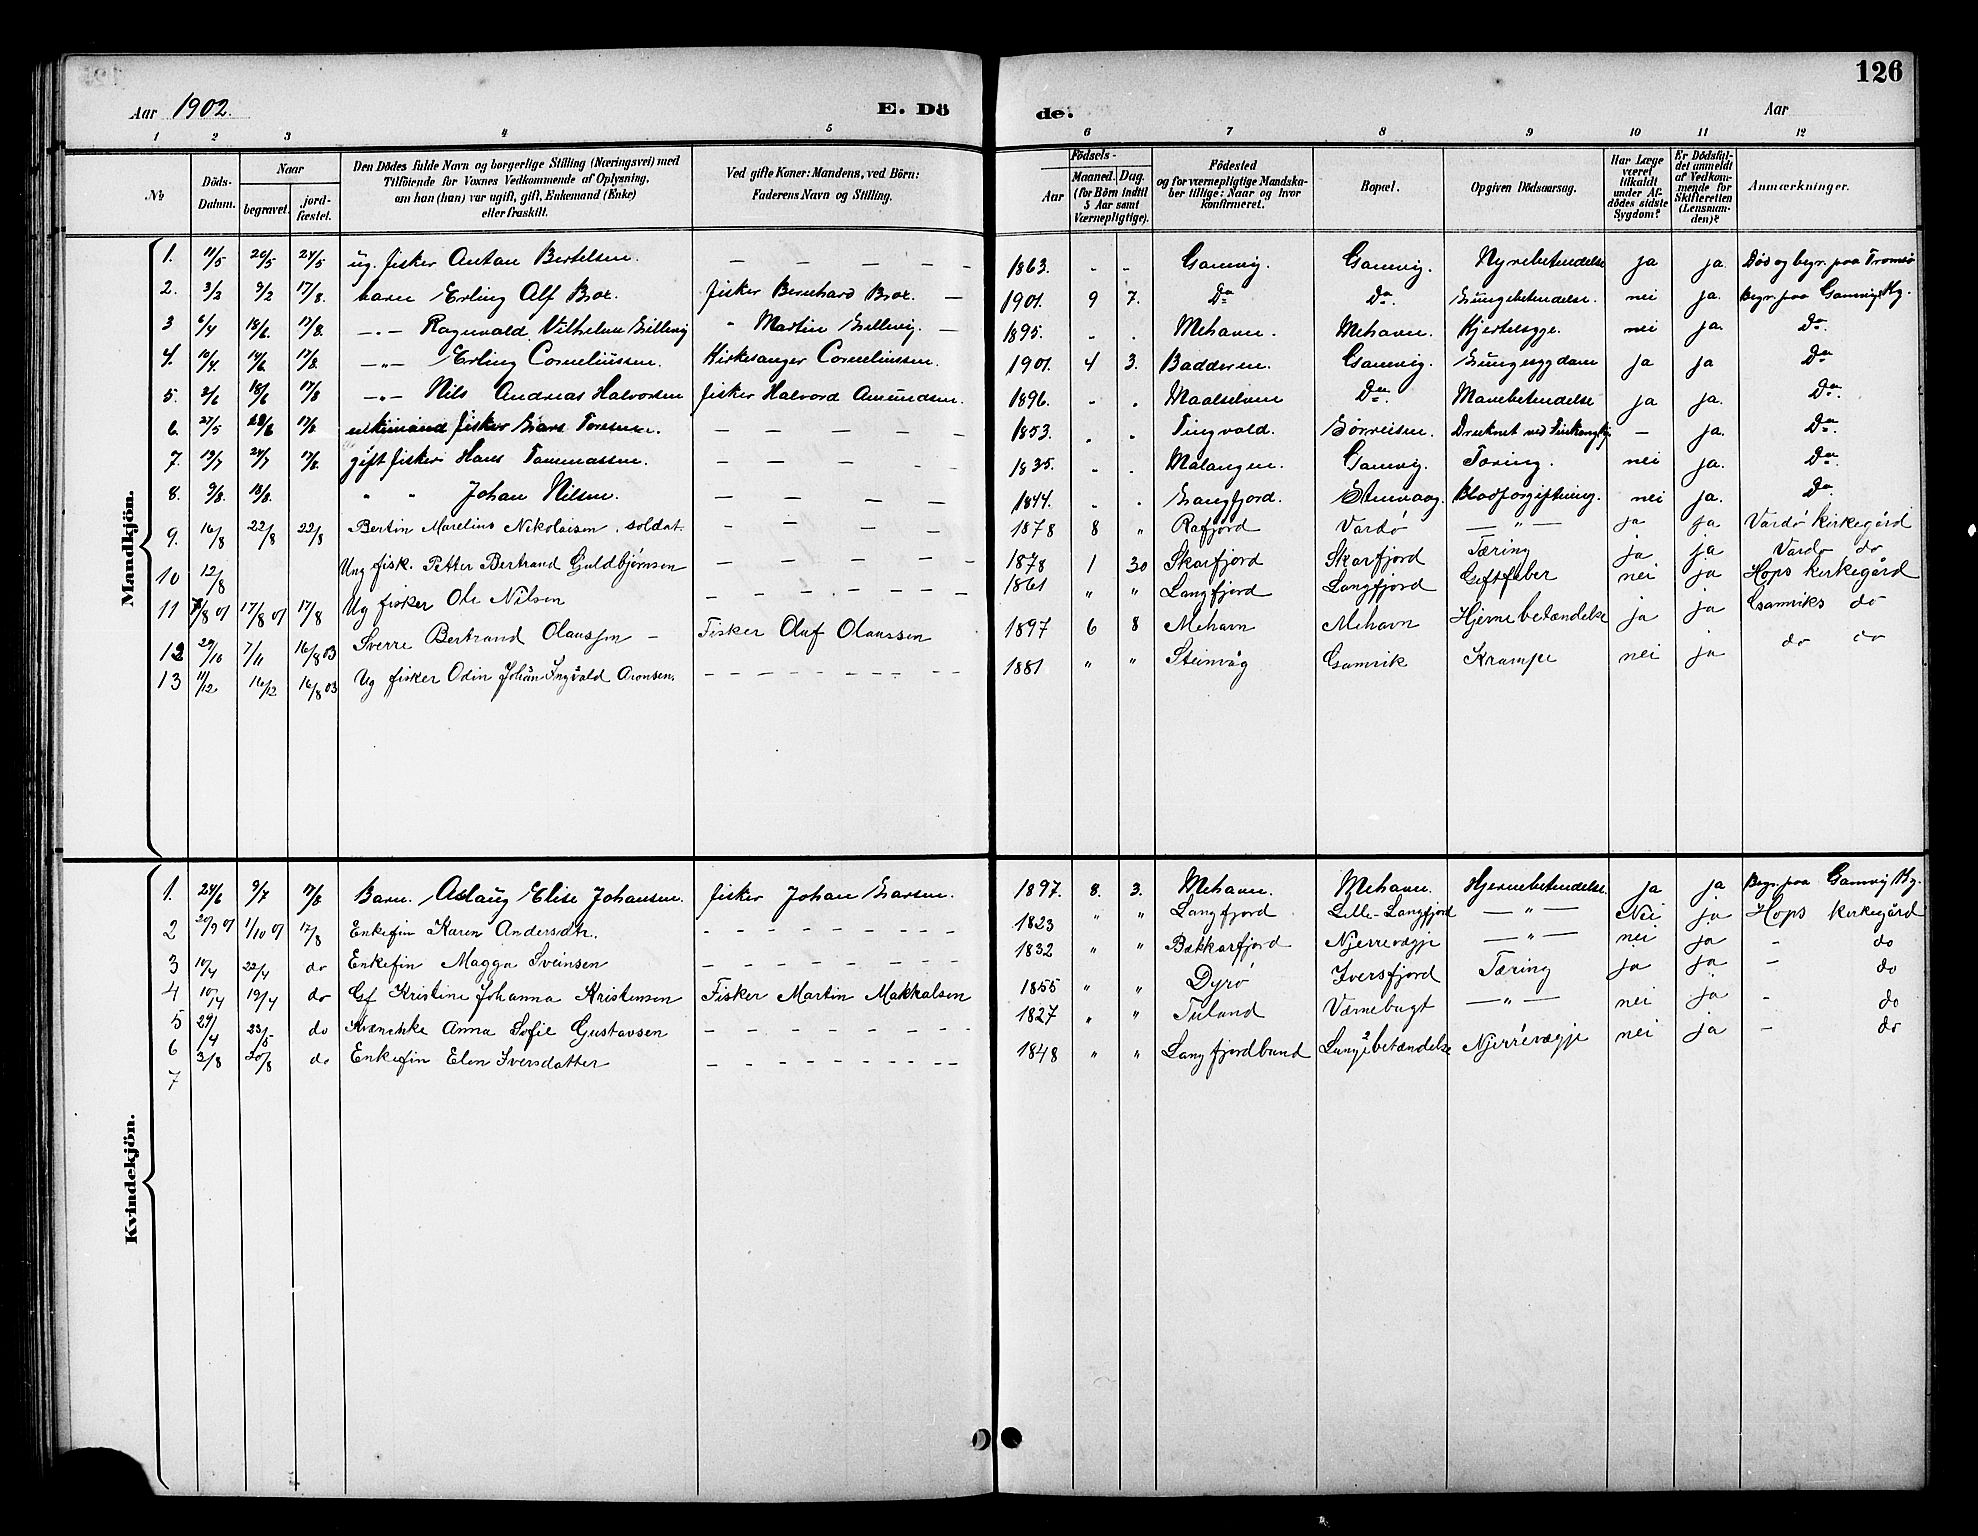 126
Aar 1902. E. Dö de. Aar
1 2 3 4 5 6 7 8 9 10 11 12
No
Döds-Datum.
Naar
begravet. jordfæstet.
Den Dödes fulde Navn og borgerlige Stilling (Næringsvei) med
Tilföiende for Voxnes Vedkommende af Oplysning,
om han (hun) var ugift, gift, Enkemand (Enke)
eller fraskilt.
Ved gifte Koner: Mandens, ved Börn:
Faderens Navn og Stilling.
Födsels-
Aar Maaned. Dag.
(for Börn indtil
5 Aar samt
Værnepligtige).
Födested
og for værnepligtige Mandska-
ber tillige: Naar og hvor
konfirmeret.
Bopæl.
Opgiven Dödsaarsag.
Har Læge
været
tilkaldt
under Af-
dödes sidste
Sygdom?
Er Dödsfal-
det anmeldt
af Vedkom-
mende for
Skifteretten
(Lensman-
den)?
Anmærkninger.
Mandkjön.
1. 11/5 20/5 24/5 ug. fisker Anton Bertelsen. — — — — 1863. - - Gamvig. Gamvig. Nyrebetendelse ja ja. Död og begr. paa Tromsö
2. 3/2 9/2 17/8. barn Erling Alf Brox. fisker Bernhard Brox. — 1901. 9 7. Do Do. Lungebetendelse. nei ja. Begr. paa Gamvig Kg.
3 6/4 18/6. 17/8. —"— Ragnvald Vilhelm Gillevig " Martin Gillevig. — 1895. . . Mehavn. Mehavn. Hjertesyge. nei ja. Do.
4. 10/4. 14/6 17/8. —"— Erling Corneliussen Kirkesanger Corneliussen. 1901. 4 3. Badderen. Gamvig. Lungesygdom ja ja Do
5. 3/6 18/6 17/8 —"— Nils Andreas Halvorsen fisker Halvord Amundsen. 1896. - . Maalselven Do. Mavebetendelse ja ja. Do.
6. 27/5 28/6 17/8. enkemand fisker Lars Toresen. — — — — 1853. . . Tingvold. Sörreisen. Druknet ved Finkongkj. — ja. Do.
7. 19/7 24/7 17/8. gift fisker Hans Tommassen. — — — — 1835. . . Malangen. Gamvig. Tæring. nei ja. Do.
8. 9/8. 18/8. " " Johan Nilsen. — — — — 1844. . . Langfjord. Stenvaag. Blodforgiftning. nei ja. Do.
9. 16/8 22/8 22/8 Bertin Marelius Nikolaisen, soldat. — — — — 1878 8 " Rafjord Vardø —"— ja ja Vardø kirkegård
10 12/8 Ung fisk. Petter Bertrand Guldbjørnsen — — — — 1878 1 30 Skarfjord Skarfjord Tæring ja ja Vardø do
11 7/8 01 17/8 01 17/8 Ug fisker Ole Nilsen — — — — 1861 " " Langfjord Langfjord Giftfeber nei ja Hops kirkegård
12 29/10 7/11 16/8 03 Sverre Bertrand Olaussen — Fisker Oluf Olaussen 1897 6 8 Mehavn Mehavn Hjernebetændelse ja ja Gamviks do
13 11/12 16/12 16/8 03 Ug fisker Odin Johan Ingvald Aronsen. — — — — 1881 " " Steinvåg Gamvik Krampe nei ja do do
Kvindekjön.
1. 24/6 9/7 17/8 Barn. Aslaug Elise Johansen. fisker Johan Larsen. 1897. 8. 3. Mehavn. Mehavn. Hjernebetendelse. ja ja Begr. paa Gamvig Kg.
2 20/9 01 1/10 01 17/8 Enkefin Karen Andersdtr. — — — — 1823 " " Langfjord Lille-Langfjord —"— Nei ja Hops kirkegård
3 10/4 22/4 do Enkefin Magga Sveinsen — — — — 1832 " " Bakkarfjord Njerrevægje —"— nei ja - do
4 10/4 19/4 do Gf Kristine Johanna Kristensen Fisker Martin Makkalsen 1855 " " Dyrø Iversfjord Tæring ja ja - do
5 29/4 23/5 do Anna Sofie Gustavsen — — — — 1827 " " Tuland Værnebugt —"— nei ja - do
6 3/8 20/8 do Enkefin Elen Iversdatter — — — — 1848 " " Langfjordbund Lungebetændelse Njerrevægje nei ja - do
7